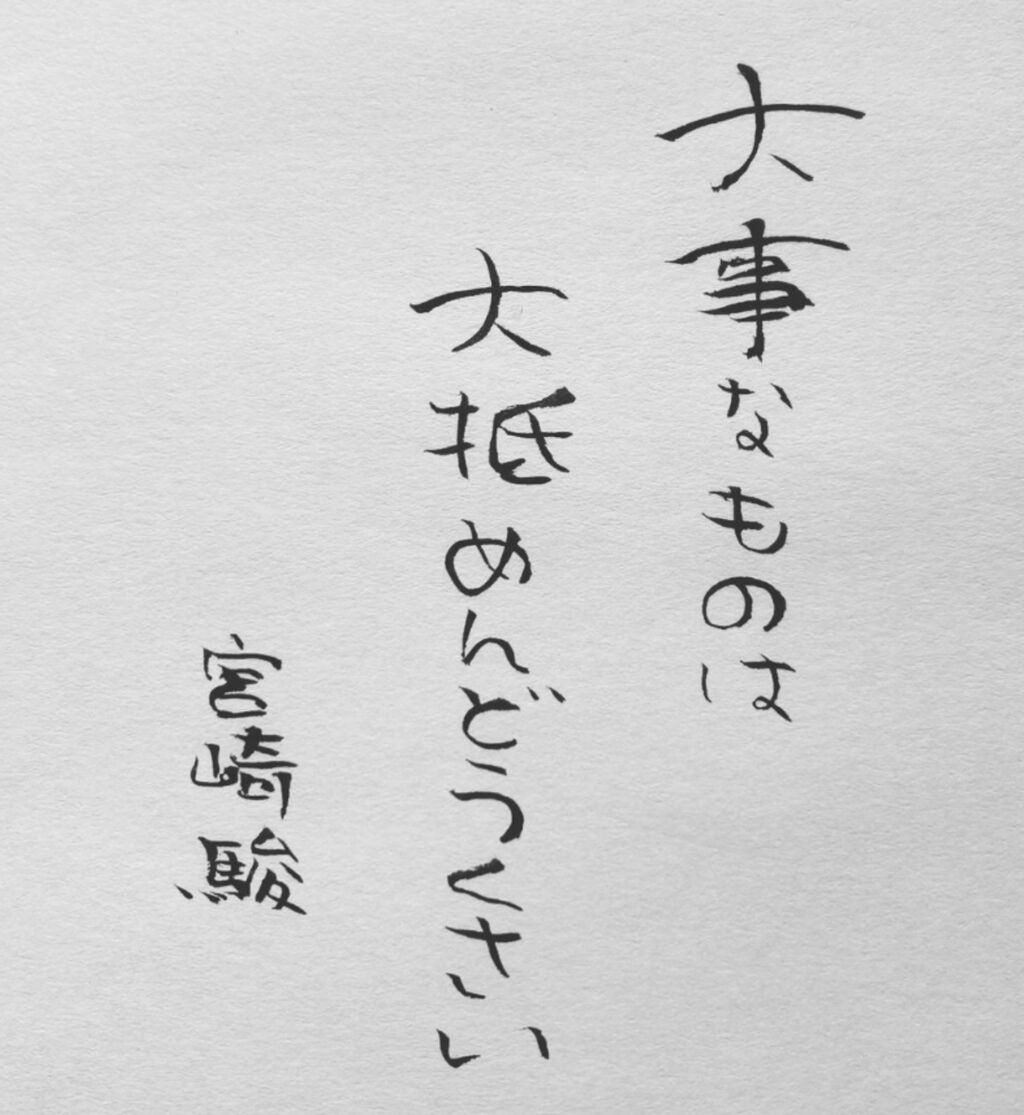 大事なものは
大抵めんどうくさい
宮崎駿